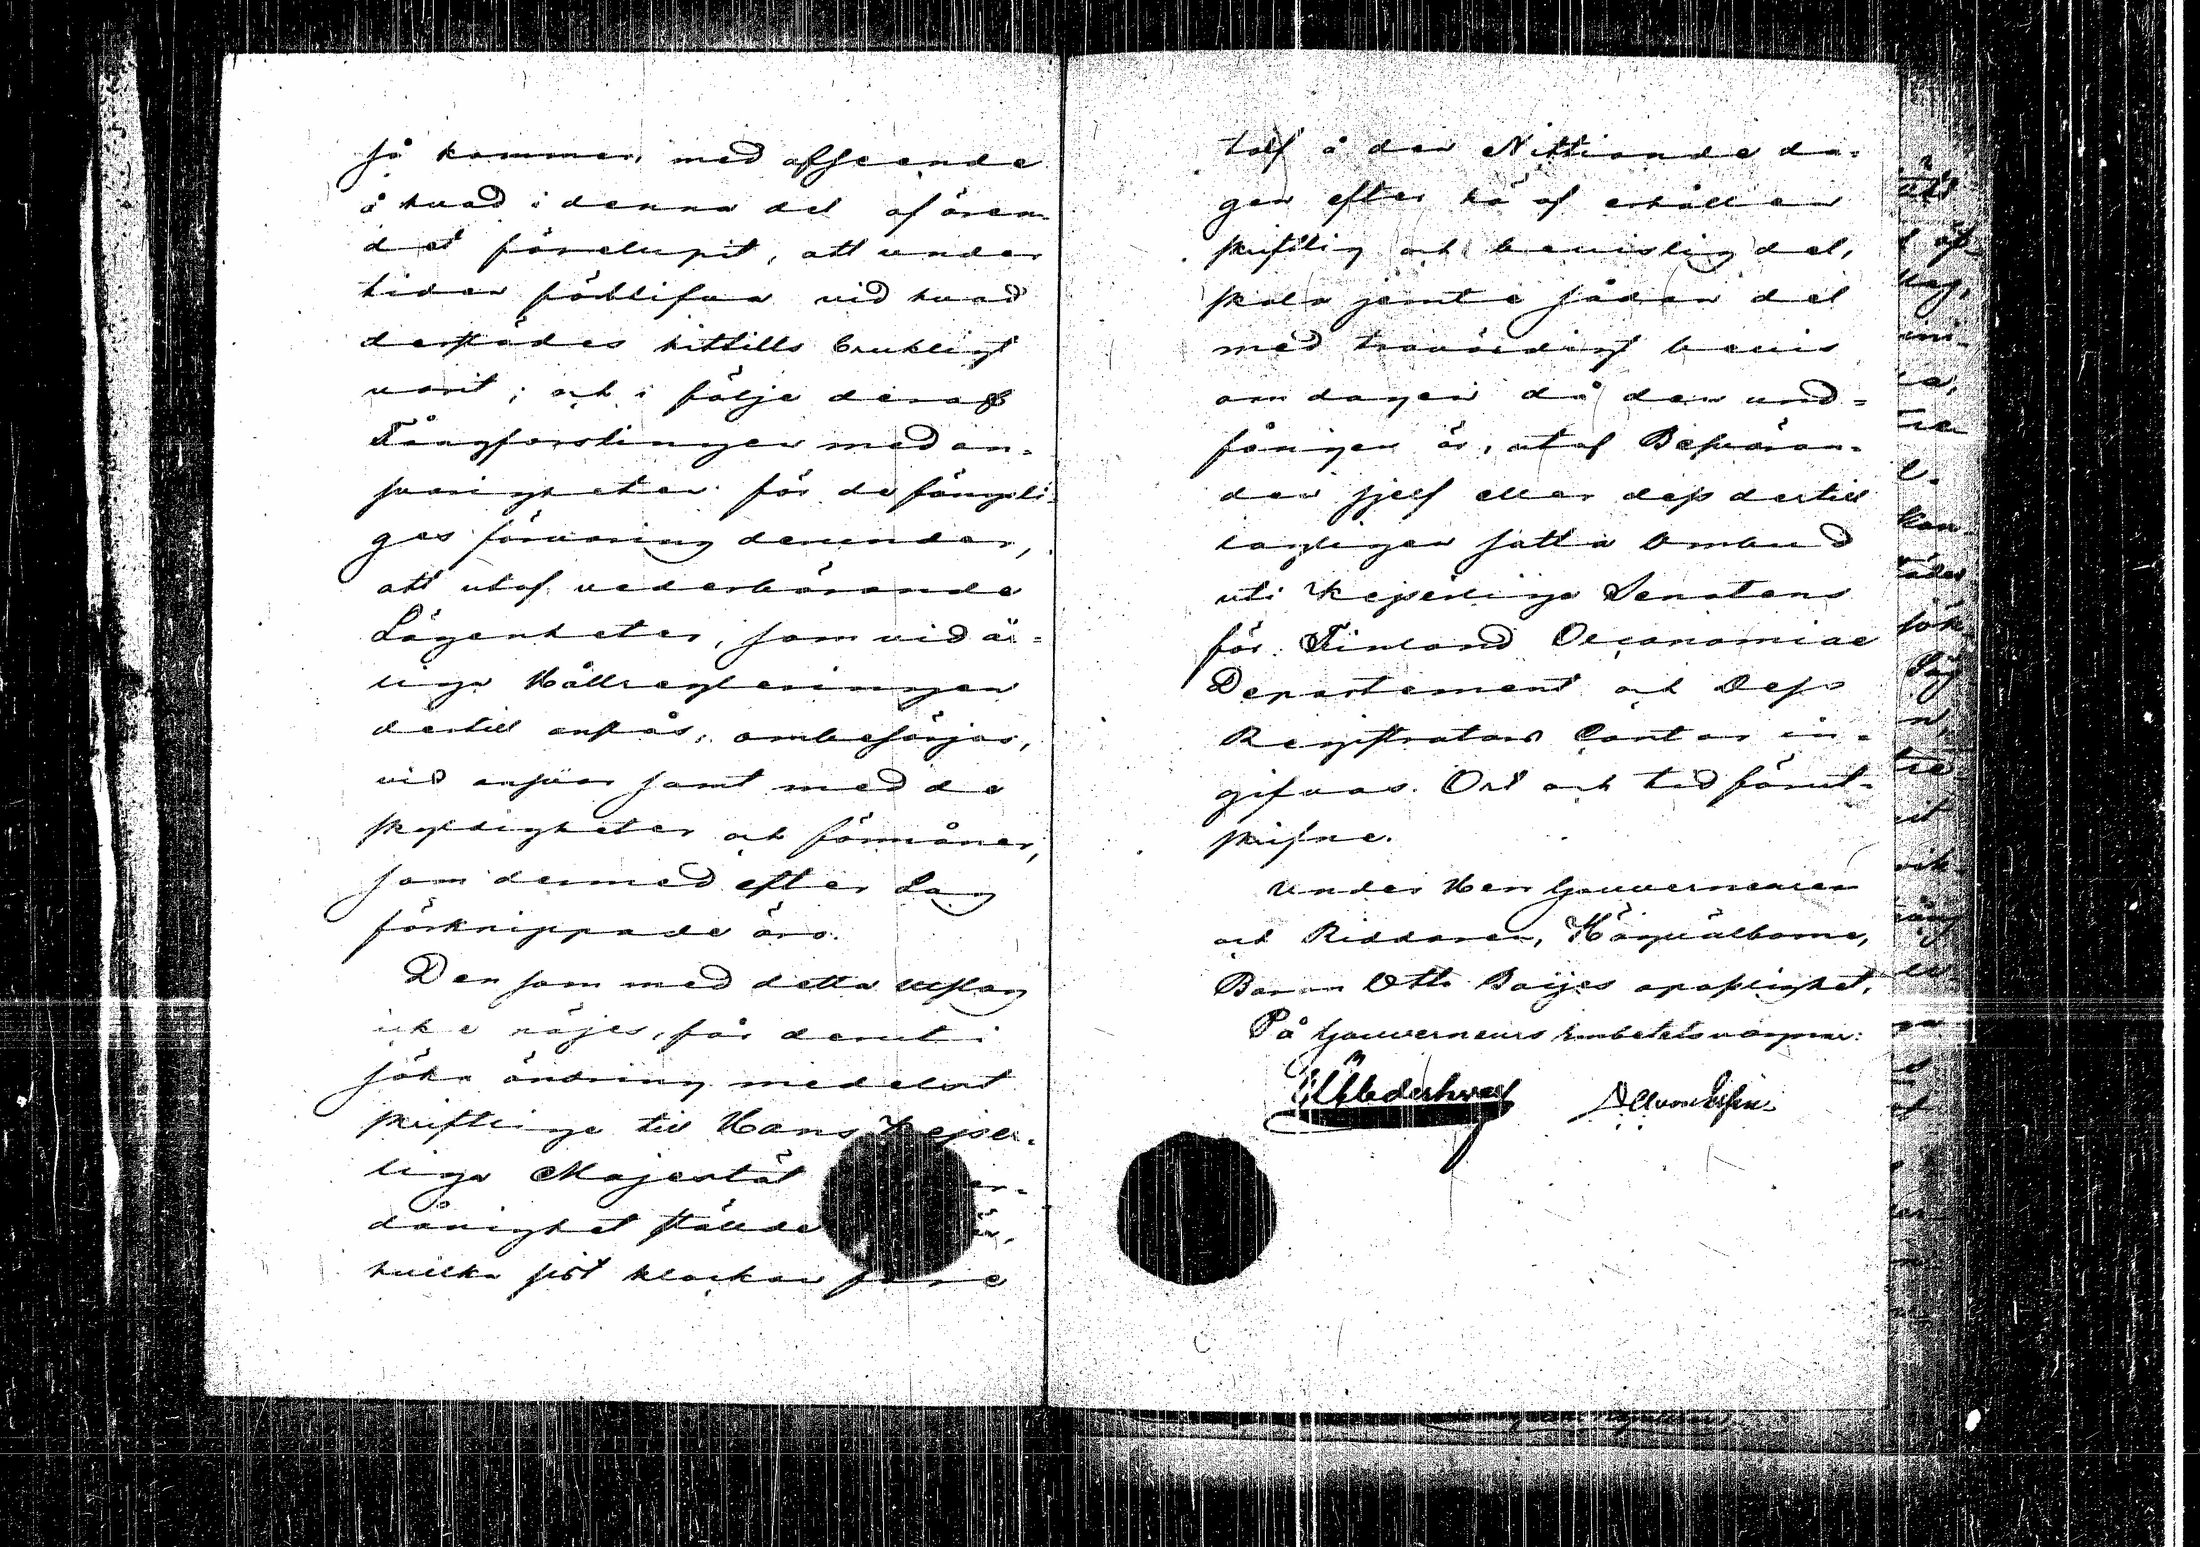 så kommer, med afseende
å hvad i denna del af ären-
det förelupit, att under
tiden förblifva vid hvad
derstädes hittills brukligt
varit; och i följe deraf
Fångforslingen med an-
svarigheter för de fängsli-
gas förvaring derunder,
att utaf vederbörande
Lägenheter, som vid år-
liga Hållregleringen
dertill anslås, ombesörjas,
vid ansvar samt med de
skyldigheter och förmåner,
som dermed efter Lag
förknippade äro.
Den som med detta Utslag
icke nöjes, får deruti
söka ändring medelst
skriftliga till Hans Kejser-
liga Majestät er-
dånighet stälde är,
hvilka sist klockan före
tolf å den Nittionde da-
gen efter hä af erhållen
skriftlig och bevislig del,
skola jemte sådan del
med trovärdigt bevis
om dagen då den und-
fången är, utaf Besvären-
den sjelf eller dess dertill
lagligen satta Ombud
uti Kejserliga Senatens
för Finland Oeconomiae
Departement och Dess
Registrators Contor in-
gifvas. Ort och tid förut-
skrifne.
Under Herr Gouverneuren
och Riddaren, Högvälborne,
Baron Otto Boijes opasslighet,
På Gouverneurs Embetets vägnar: